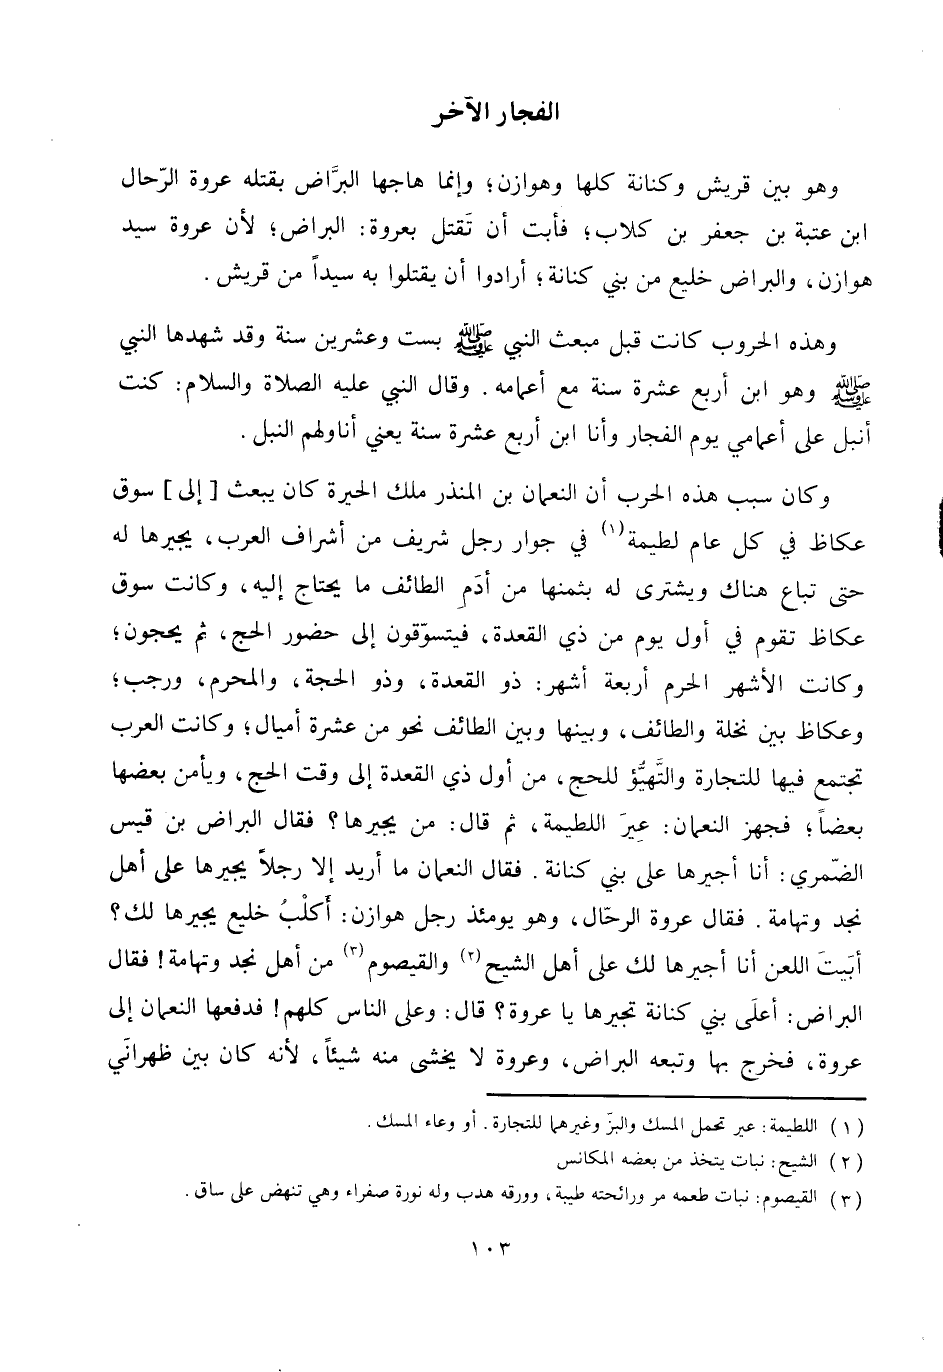 الفجار الآخر
وهو بين قريش وكنانة كلها وهوازن؛ وإنما هاجها البرَّاض بقتله عروة الرّحال
ابن عتبة بن جعفر بن كلاب؛ فأبت أن تَقتل بعروة: البراض؛ لأن عروة سيد
هوازن، والبراض خليع من بني كنانة؛ أرادوا أن يقتلوا به سيداً من قريش.
وهذه الحروب كانت قبل مبعث النبي ﷺ بست وعشرين سنة وقد شهدها النبي
ﷺ وهو ابن أربع عشرة سنة مع أعمامه. وقال النبي عليه الصلاة والسلام: كنت
أنبل على أعمامي يوم الفجار وأنا ابن أربع عشرة سنة يعني أناولهم النبل.
وكان سبب هذه الحرب أن النعمان بن المنذر ملك الحيرة كان يبعث [إلى] سوق
عكاظ في كل عام لطيمة(١) في جوار رجل شريف من أشراف العرب، يجيرها له
حتى تباع هناك ويشترى له بثمنها من أدَمِ الطائف ما يحتاج إليه، وكانت سوق
عكاظ تقوم في أول يوم من ذي القعدة، فيتسوّقون إلى حضور الحج، ثم يحجون؛
وكانت الأشهر الحرم أربعة أشهر: ذو القعدة، وذو الحجة، والمحرم، ورجب؛
وعكاظ بين نخلة والطائف، وبينها وبين الطائف نحو من عشرة أميال؛ وكانت العرب
تجتمع فيها للتجارة والتَّهيُّؤ للحج، من أول ذي القعدة إلى وقت الحج، ويأمن بعضها
بعضاً؛ فجهز النعمان: عِيرَ اللطيمة، ثم قال: من يجيرها؟ فقال البراض بن قيس
الضّمري: أنا أجيرها على بني كنانة. فقال النعمان ما أريد إلا رجلاً يجيرها على أهل
نجد وتهامة. فقال عروة الرحّال، وهو يومئذ رجل هوازن: أَكلْبُ خليع يجيرها لك؟
أبَيتَ اللعن أنا أجيرها لك على أهل الشيح(٢) والقيصوم(٣) من أهل نجد وتهامة! فقال
البراض: أعلَى بني كنانة تجيرها يا عروة؟ قال: وعلى الناس كلهم! فدفعها النعمان إلى
عروة، فخرج بها وتبعه البراض، وعروة لا يخشى منه شيئاً، لأنه كان بين ظهرانَي
(١) اللطيمة: عير تحمل المسك والبزّ وغيرهما للتجارة. أو وعاء المسك.
(٢) الشيح: نبات يتخذ من بعضه المكانس
(٣) القيصوم: نبات طعمه مر ورائحته طيبة، وورقه هدب وله نورة صفراء وهي تنهض على ساق.
١٠٣